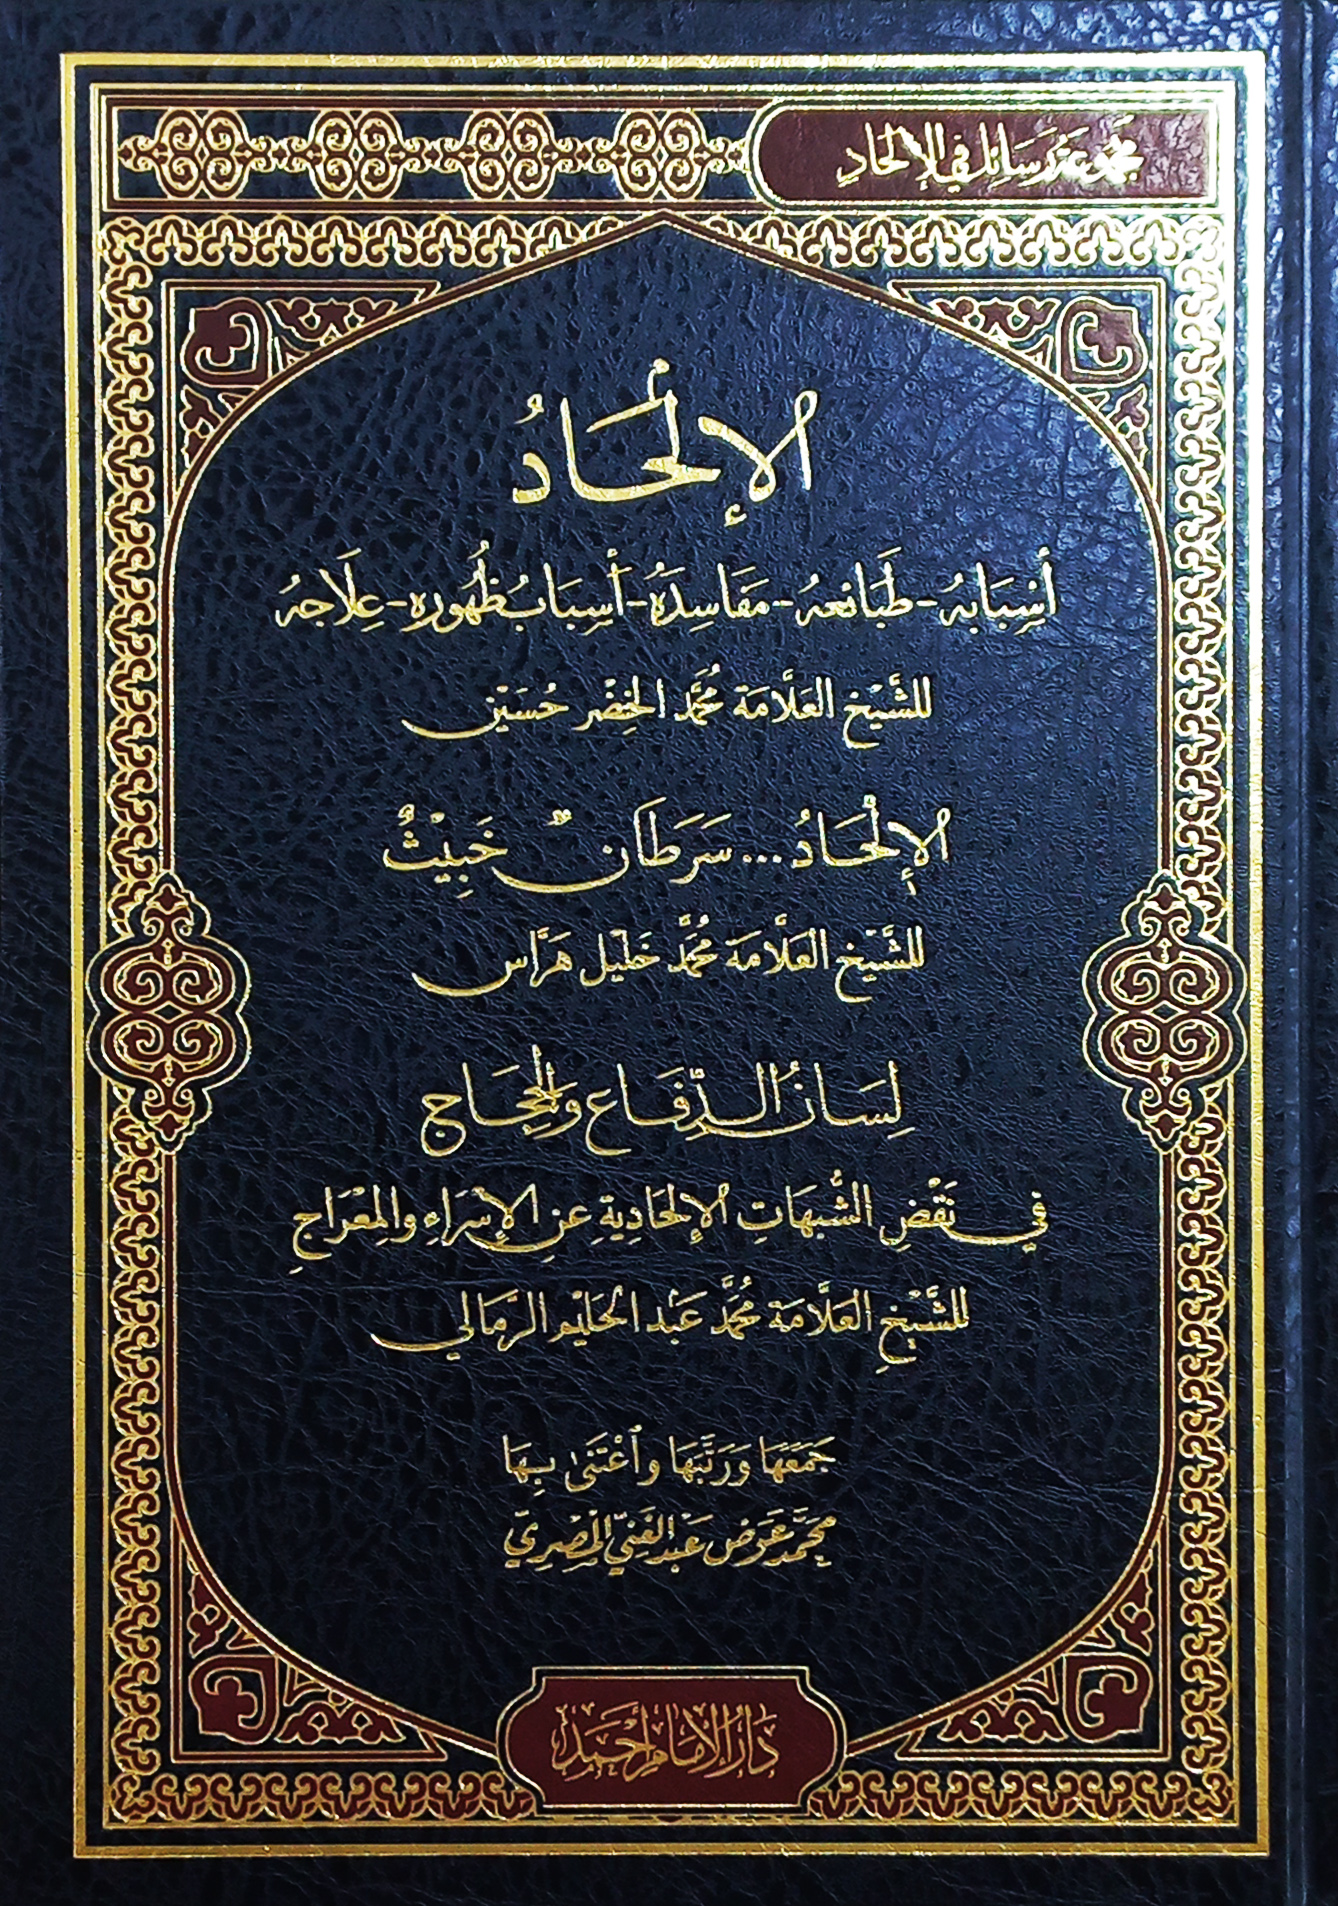 مجموعة رسائل في الإلحاد
الإلحَادُ
أَسْبَابهُ - طَبَائعهُ - مَفَاسِدَهُ - أَسبَابُ ظُهُوره - عِلَاجهُ
للشَّيْخ العَلَّامَة مُحمَّد الخِضْر حُسَيْن
الإِلْحَادُ... سَرَطَانٌ خَبِيْثٌ
للشَّيْخ العَلَّامَة مُحمَّد خَليْل هَرَّاس
لِسَانُ الدِّفَاع وَالحِجَاج
في نَقْضِ الشُّبهَاتِ الإلحَاديةِ عَنِ الإِسْرَاءِ والمِعْرَاجِ
للشَّيْخِ العَلَّامَة مُحمَّد عَبد الحَليْم الرَّمَالي
جَمَعَهَا وَرَتَّبَهَا وَاعْتَنَى بِهَا
محمَّد عَوَض عَبْد الغَنِيّ المِصْرِيّ
دَارُ الإمَام أَحْمَد